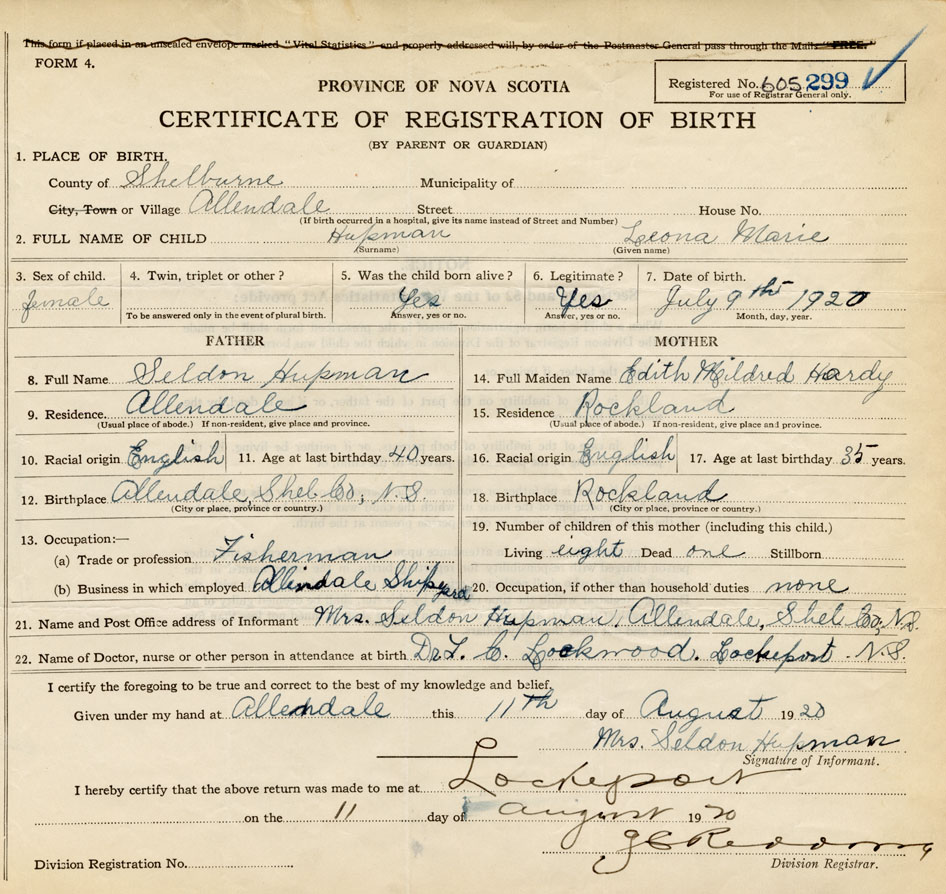 This form if placed in an unsealed envelope marked "Vital Statistics" and properly addressed will, by order of the Postmaster General pass through the Mails "FREE."
FORM 4.
Registered No. 605299
For use of Registrar General only.
PROVINCE OF NOVA SCOTIA
CERTIFICATE OF REGISTRATION OF BIRTH
(BY PARENT OR GUARDIAN)
1. PLACE OF BIRTH.
County of Shelburne Municipality of
City, Town or Village Allendale Street House No.
(If birth occurred in a hospital, give its name instead of Street and Number)
2. FULL NAME OF CHILD Hupman Leona Marie
(Surname) (Given name)
3. Sex of child. 4. Twin, triplet or other? 5. Was the child born alive? 6. Legitimate? 7. Date of birth.
female Yes Yes July 9th 1920
To be answered only in the event of plural birth. Answer, yes or no. Answer, yes or no. Month, day, year.
FATHER
8. Full Name Seldon Hupman
9. Residence. Allendale
(Usual place of abode.) If non-resident, give place and province.
10. Racial origin English 11. Age at last birthday 40 years.
12. Birthplace Allendale, Shel Co, N.S.
(City or place, province or country.)
13. Occupation:—
(a) Trade or profession Fisherman
(b) Business in which employed Allindale Shipyard
MOTHER
14. Full Maiden Name Edith Mildred Hardy
15. Residence Rockland
(Usual place of abode.) If non-resident, give place and province.
16. Racial origin English 17. Age at last birthday 35 years.
18. Birthplace Rockland
(City or place, province or country.)
19. Number of children of this mother (including this child.)
Living eight Dead one Stillborn
20. Occupation, if other than household duties none
21. Name and Post Office address of Informant Mrs. Seldon Hupman, Allendale, Shel Co, N.S.
22. Name of Doctor, nurse or other person in attendance at birth Dr. L. C. Lockwood. Lockeport. N.S.
I certify the foregoing to be true and correct to the best of my knowledge and belief,
Given under my hand at Allendale this 11th day of August 1920
Mrs. Seldon Hupman
Signature of Informant.
I hereby certify that the above return was made to me at Lockeport
on the 11 day of August 1920
Division Registration No. Division Registrar.